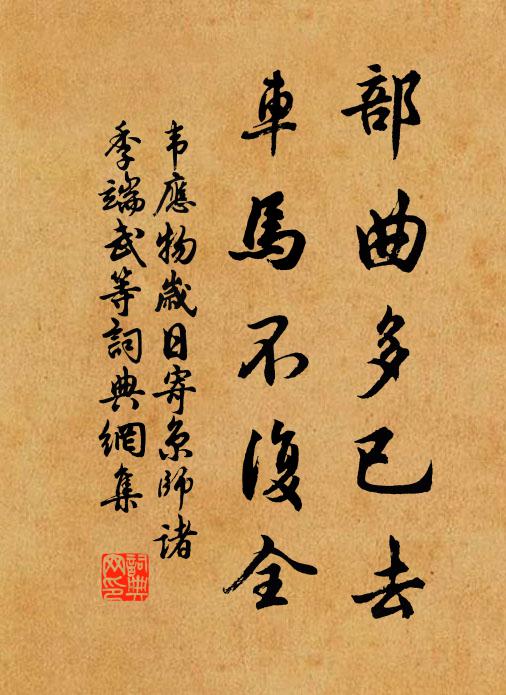 部曲多已去
車馬不復全
韦應物歲日寄京師諸
季端武等詞典網集
詞典
网印